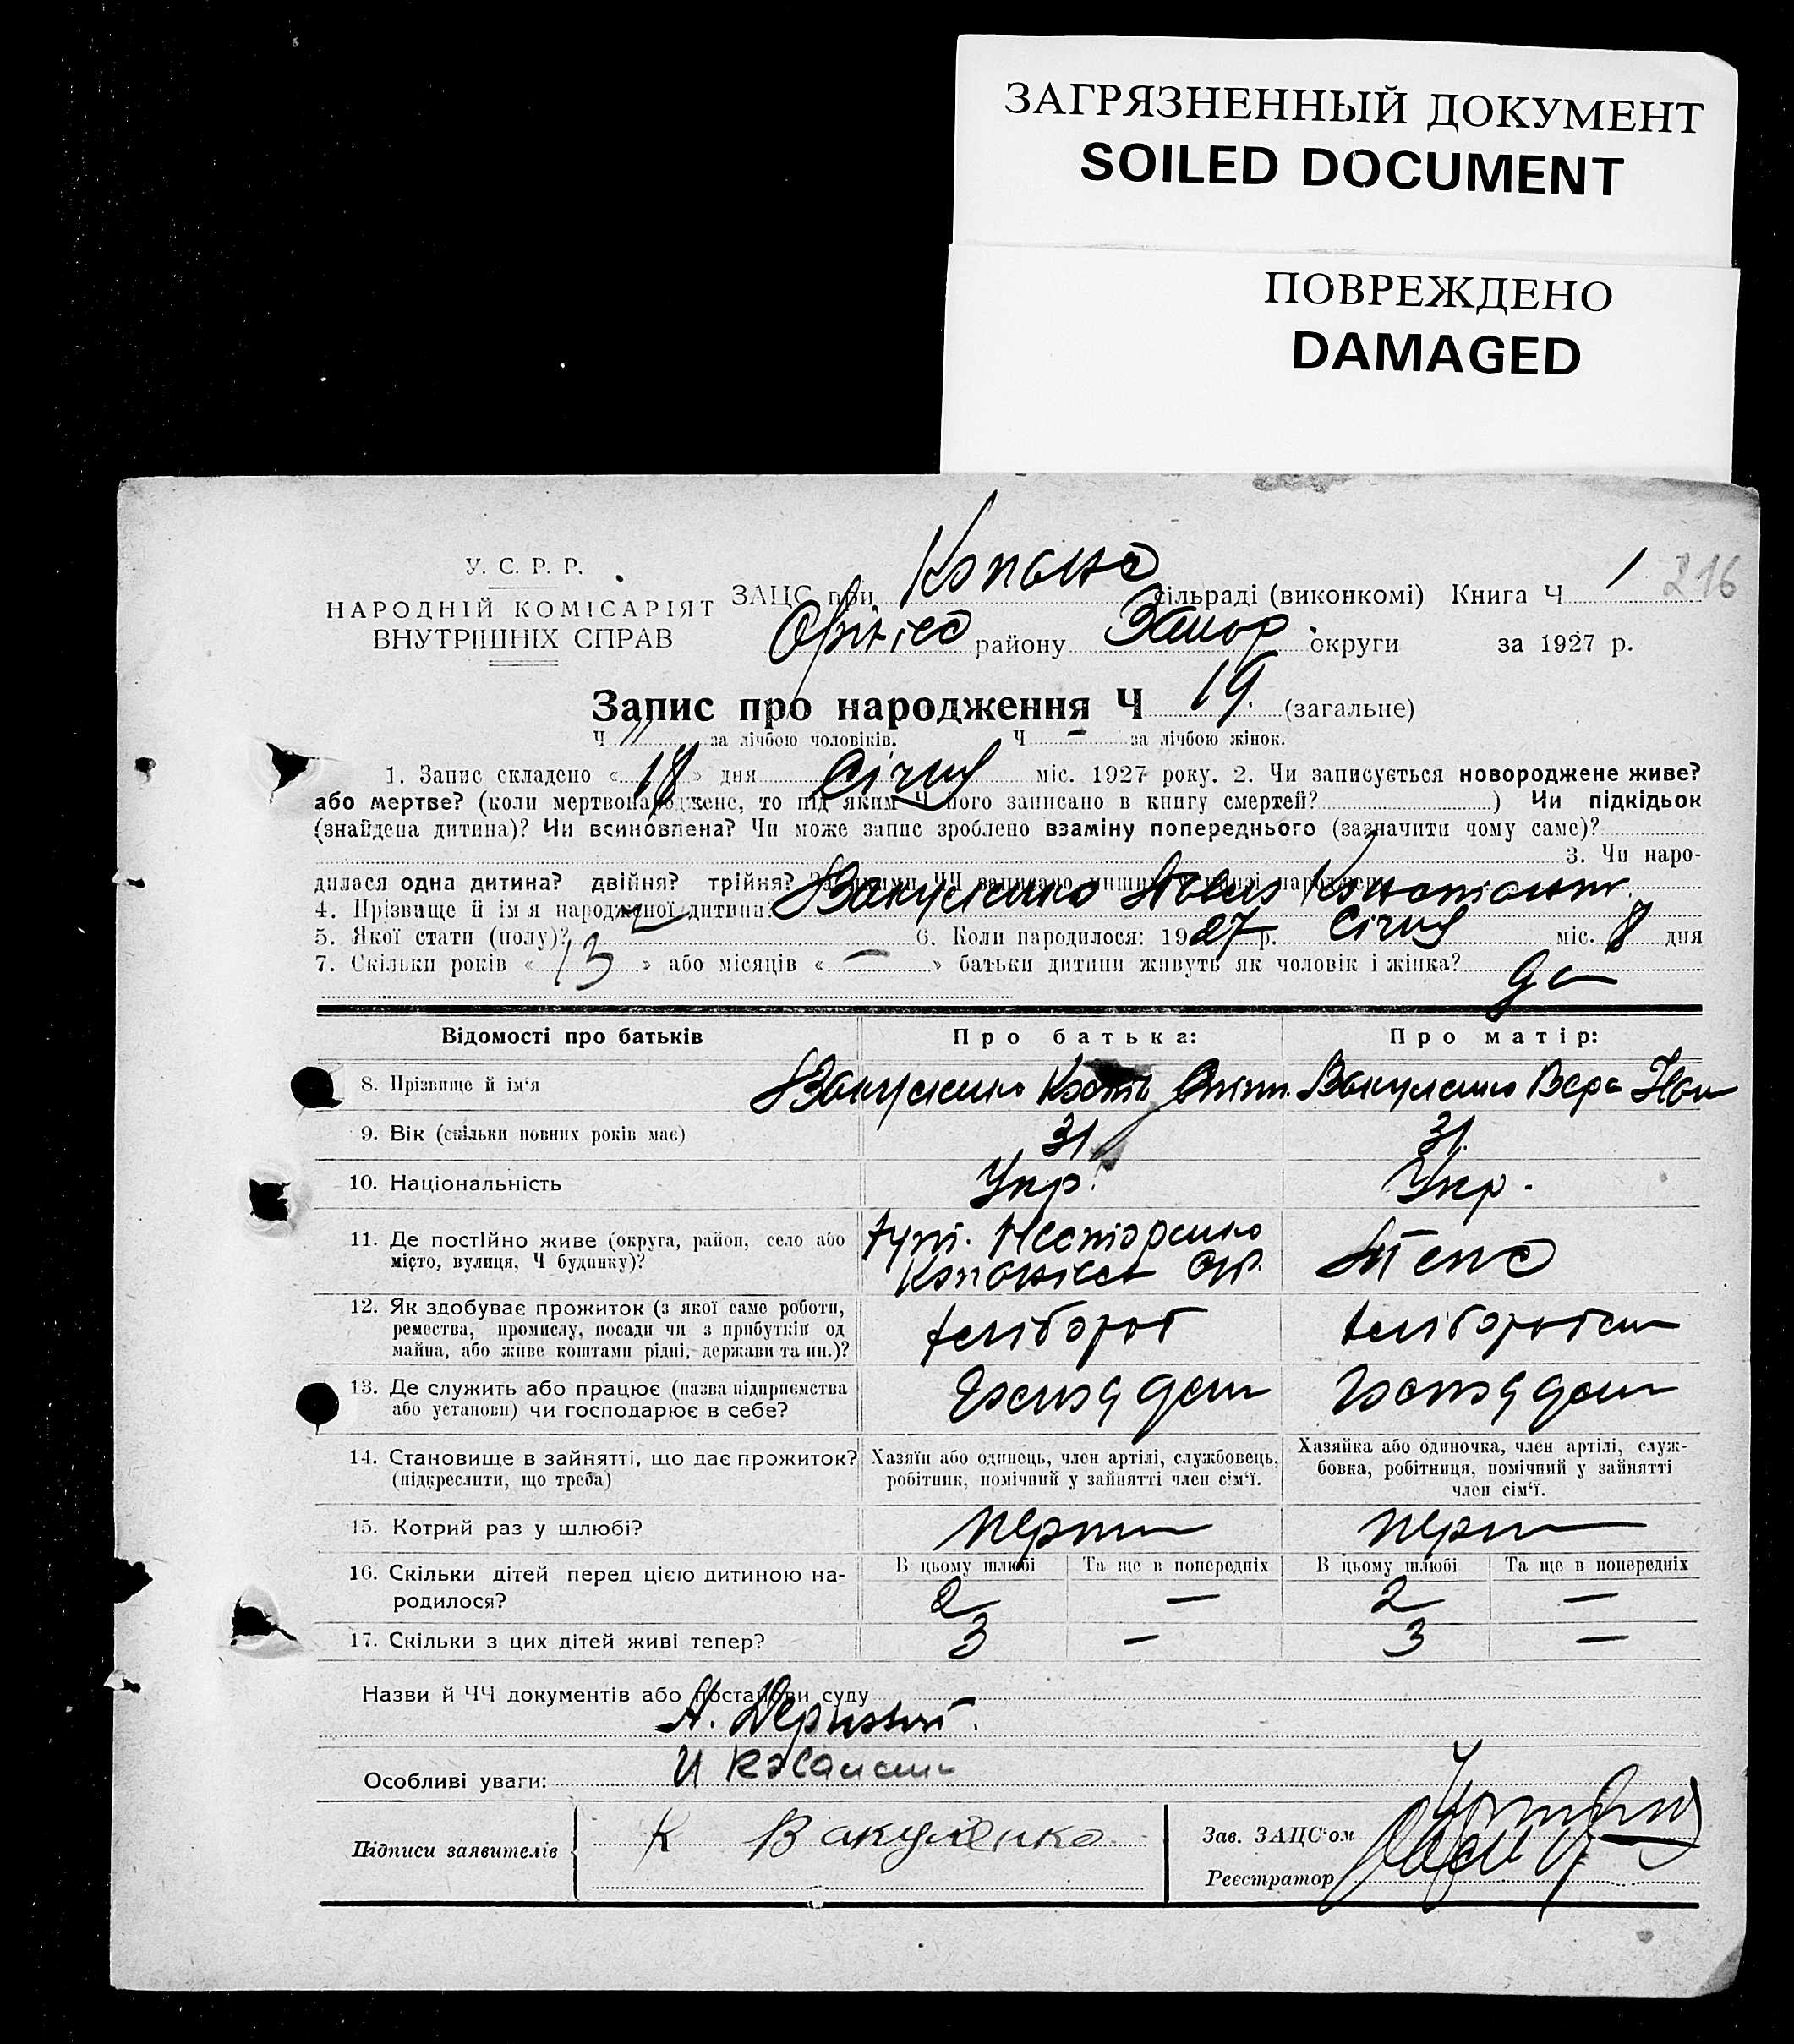 ЗАГРЯЗНЕННЫЙ ДОКУМЕНТ
SOILED DOCUMENT
ПОВРЕЖДЕНО
DAMAGED
У. С. Р. Р.
НАРОДНІЙ КОМІСАРІЯТ
ВНУТРІШНІХ СПРАВ
ЗАЦС при Копанс сільраді (виконкомі) Книга Ч 1 216
району Запор. округи за 1927 р.
Запис про народження Ч 19. (загальне)
Ч 11 за лічбою чоловіків. Ч — за лічбою жінок.
1. Запис складено «18» дня Січня міс. 1927 року. 2. Чи записується новороджене живе?
або мертве? (коли мертвонароджене, то під яким Ч його записано в книгу смертей? ) Чи підкідьок
(знайдена дитина)? Чи всиновлена? Чи може запис зроблено взаміну попереднього (зазначити чому саме)?
3. Чи наро-
дилася одна дитина? двійня? трійня? За якими ЧЧ записано инших у книзі народжень
4. Прізвище й ім'я народженої дитини? Вакуленко
5. Якої стати (полу)? 6. Коли народилося: 1927 р. Січня міс. 8 дня
7. Скільки років «13» або місяців «—» батьки дитини живуть як чоловік і жінка? да
Відомості про батьків Про батька: Про матір:
8. Прізвище й ім'я Вакуленко Вакуленко Вера
9. Вік (скільки повних років має) 31 31.
10. Національність Укр. Укр.
11. Де постійно живе (округа, район, село або
місто, вулиця, Ч будинку)? хут. Нестеренко
12. Як здобуває прожиток (з якої саме роботи,
ремества, промислу, посади чи з прибутків од
майна, або живе коштами рідні, держави та ин.)? хлібороб
13. Де служить або працює (назва підприємства
або установи) чи господарює в себе?
14. Становище в зайнятті, що дає прожиток?
(підкреслити, що треба)
Хазяїн або одинець, член артілі, службовець,
робітник, помічний у зайнятті член сім'ї.
Хазяйка або одиночка, член артілі, служ-
бовка, робітниця, помічний у зайнятті
член сім'ї.
15. Котрий раз у шлюбі?
16. Скільки дітей перед цією дитиною на-
родилося?
В цьому шлюбі Та ще в попередніх В цьому шлюбі Та ще в попередніх
2 — 2 —
17. Скільки з цих дітей живі тепер? 3 — 3 —
Назви й ЧЧ документів або постанови суду
Особливі уваги:
Підписи заявителів К Вакуленко
Зав. ЗАЦС'ом
Реєстратор